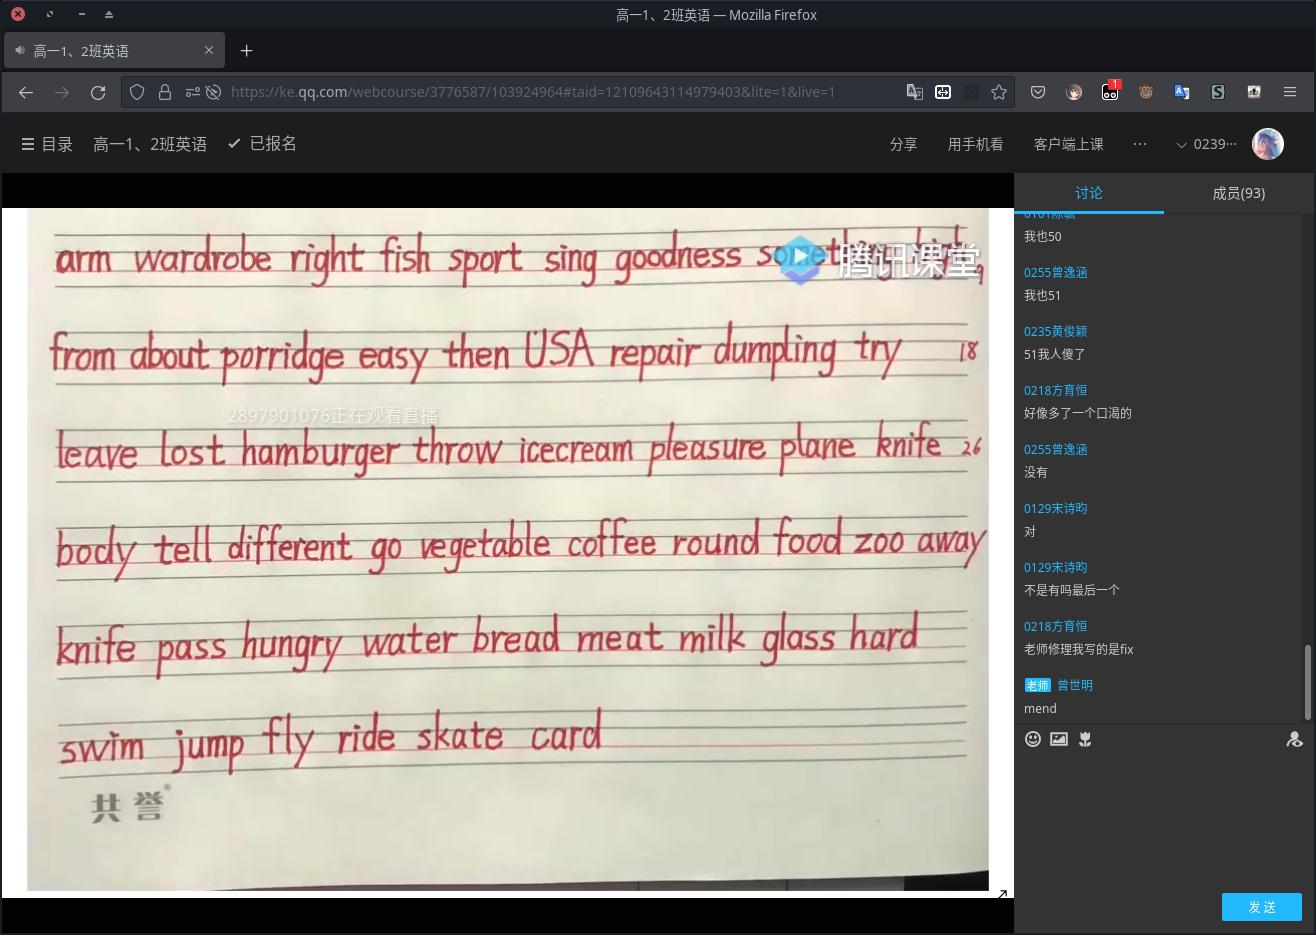 高一1、2班英语 — Mozilla Firefox
高一1、2班英语
https://ke.qq.com/webcourse/3776587/103924964#taid=12109643114979403&lite=1&live=1
1
目录 高一1、2班英语 已报名
分享 用手机看 客户端上课 ··· 0239···
arm wardrobe right fish sport sing goodness
腾讯课堂
from about porridge easy then USA repair dumpling try 18
2897901076正在观看直播
leave lost hamburger throw icecream pleasure plane knife 26
body tell different go vegetable coffee round food zoo away
knife pass hungry water bread meat milk glass hard
swim jump fly ride skate card
共誉
讨论 成员(93)
我也50
0255曾逸涵
我也51
0235黄俊颖
51我人傻了
0218方育恒
好像多了一个口渴的
0255曾逸涵
没有
0129宋诗昀
对
0129宋诗昀
不是有吗最后一个
0218方育恒
老师修理我写的是fix
老师 曾世明
mend
发 送